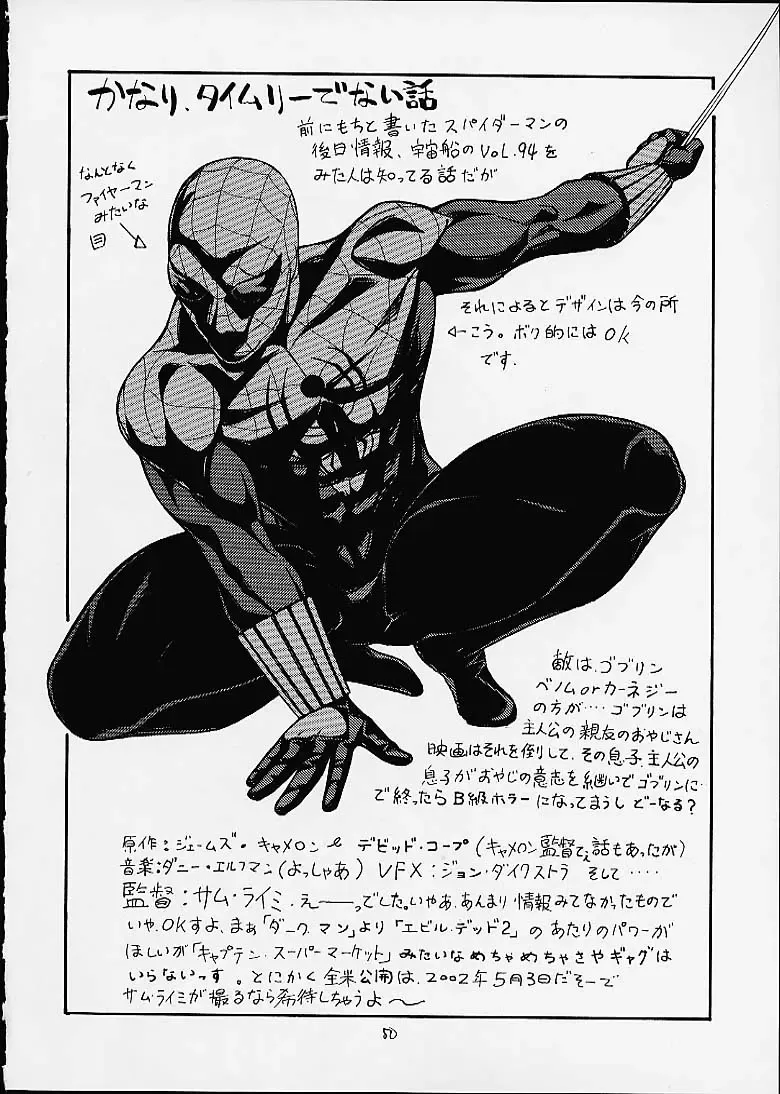 かなり、タイムリーでない話
前にもちと書いたスパイダーマンの
後日情報、宇宙船のVol.94を
みた人は知ってる話だが
なんとなく
ファイヤーマン
みたいな
目
それによるとデザインは今の所
←こう。ボク的にはOK
です.
敵は、ゴブリン
ベノムorカーネジー
の方が‥‥ゴブリンは
主人公の親友のおやじさん
映画はそれを倒して、その息子、主人公の
息子がおやじの意志を継いでゴブリンに‥
で終ったらB級ホラーになってまうしどーなる?
原作:ジェームズ・キャメロンと デビッド・コープ(キャメロン監督て話もあったが)
音楽:ダニー・エルフマン(よっしゃあ) VFX:ジョン・ダイクストラ そして‥‥
監督:サム・ライミ.えー――っでした。いやあ、あんまり情報みてなかったもので
いや、OKすよ、まぁ「ダークマン」より「エビル・デッド2」のあたりのパワーが
ほしいが「キャプテン・スーパーマーケット」みたいなめちゃめちゃさやギャグは
いらないっす。とにかく全米公開は、2002年5月3日だそーで
サム・ライミが撮るなら希待しちゃうよ〜
50